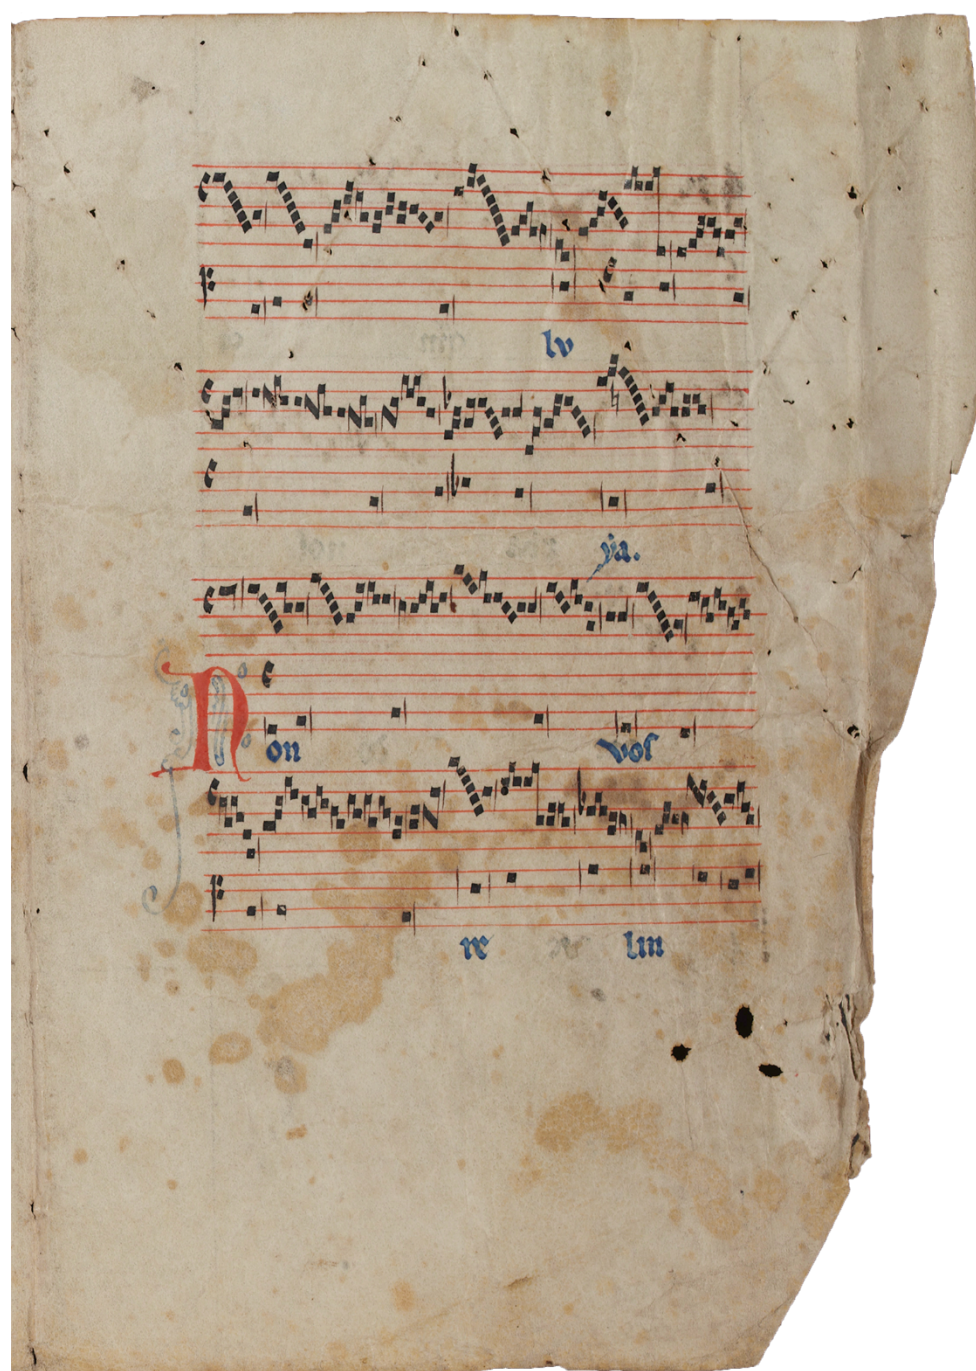 lv
ẏa.
Non vos
re lin